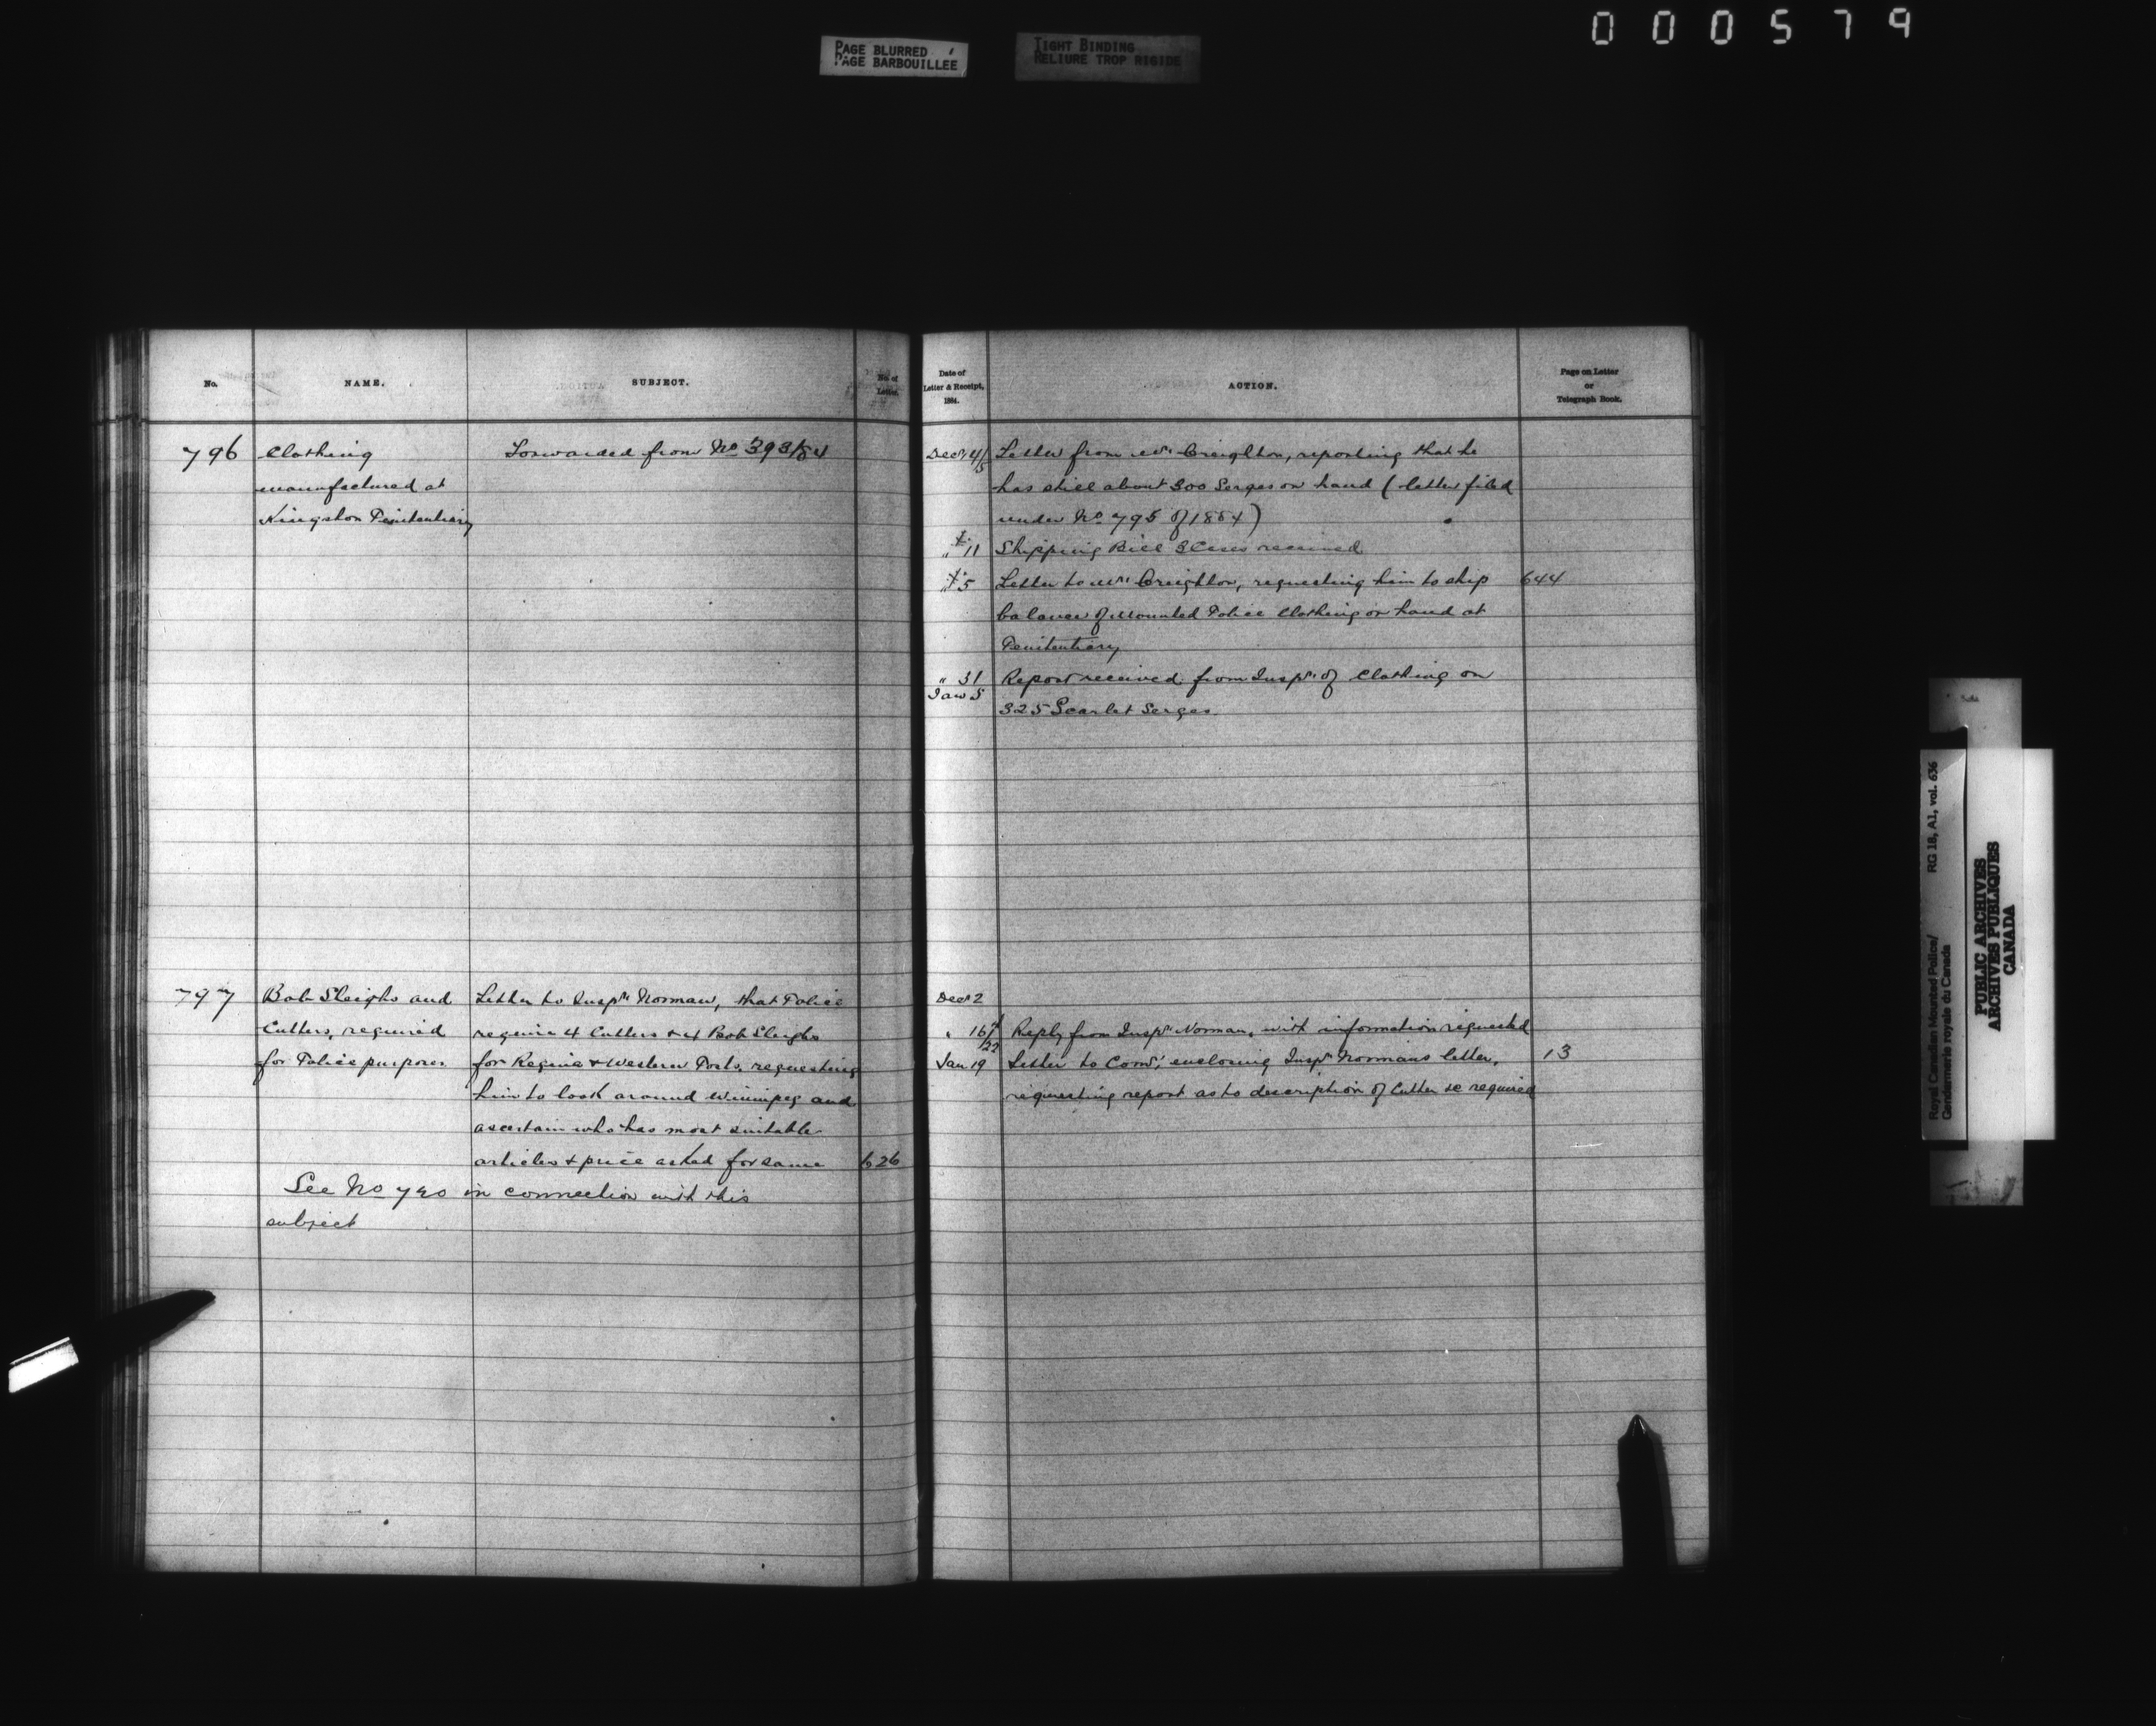 000579
PAGE BLURRED
PAGE BARBOUILLEE
TIGHT BINDING
RELIURE TROP RIGIDE
No. NAME. SUBJECT. No. of Letter.
796 Clothing Forwarded from No 393/84
manufactured at
Kingston Penitentiary
797 Bob Sleighs and Letter to Inspr Norman, that Police
Cutters, required require 4 Cutters & 4 Bob Sleighs
for Police purposes for Regina & Western Posts, requesting
him to look around Winnipeg and
ascertain who has most suitable
articles & price asked for same 626
See No in connection with this
subject
Date of Letter & Receipt, 1884. ACTION. Page on Letter or Telegraph Book.
Decr 4/5 Letter from Mr Creighton, reporting that he
has still about 300 Serges on hand (letter filed
under No 795 of 1884)
" 11 Shipping Bill 3 Cases received
" 5 Letter to Mr Creighton, requesting him to ship 644
balance of Mounted Police Clothing on hand at
Penitentiary
" 31 Report received from Inspr of Clothing on
Jan 5 325 Scarlet Serges
Decr 2
" 16/22 Reply from Inspr Norman, with information requested
Jan 19 Letter to Comr, enclosing Inspr Normans letter, 13
requesting report as to description of Cutter &c required
Royal Canadian Mounted Police/ RG 18, A1, vol. 636
Gendarmerie royale du Canada
PUBLIC ARCHIVES
ARCHIVES PUBLIQUES
CANADA